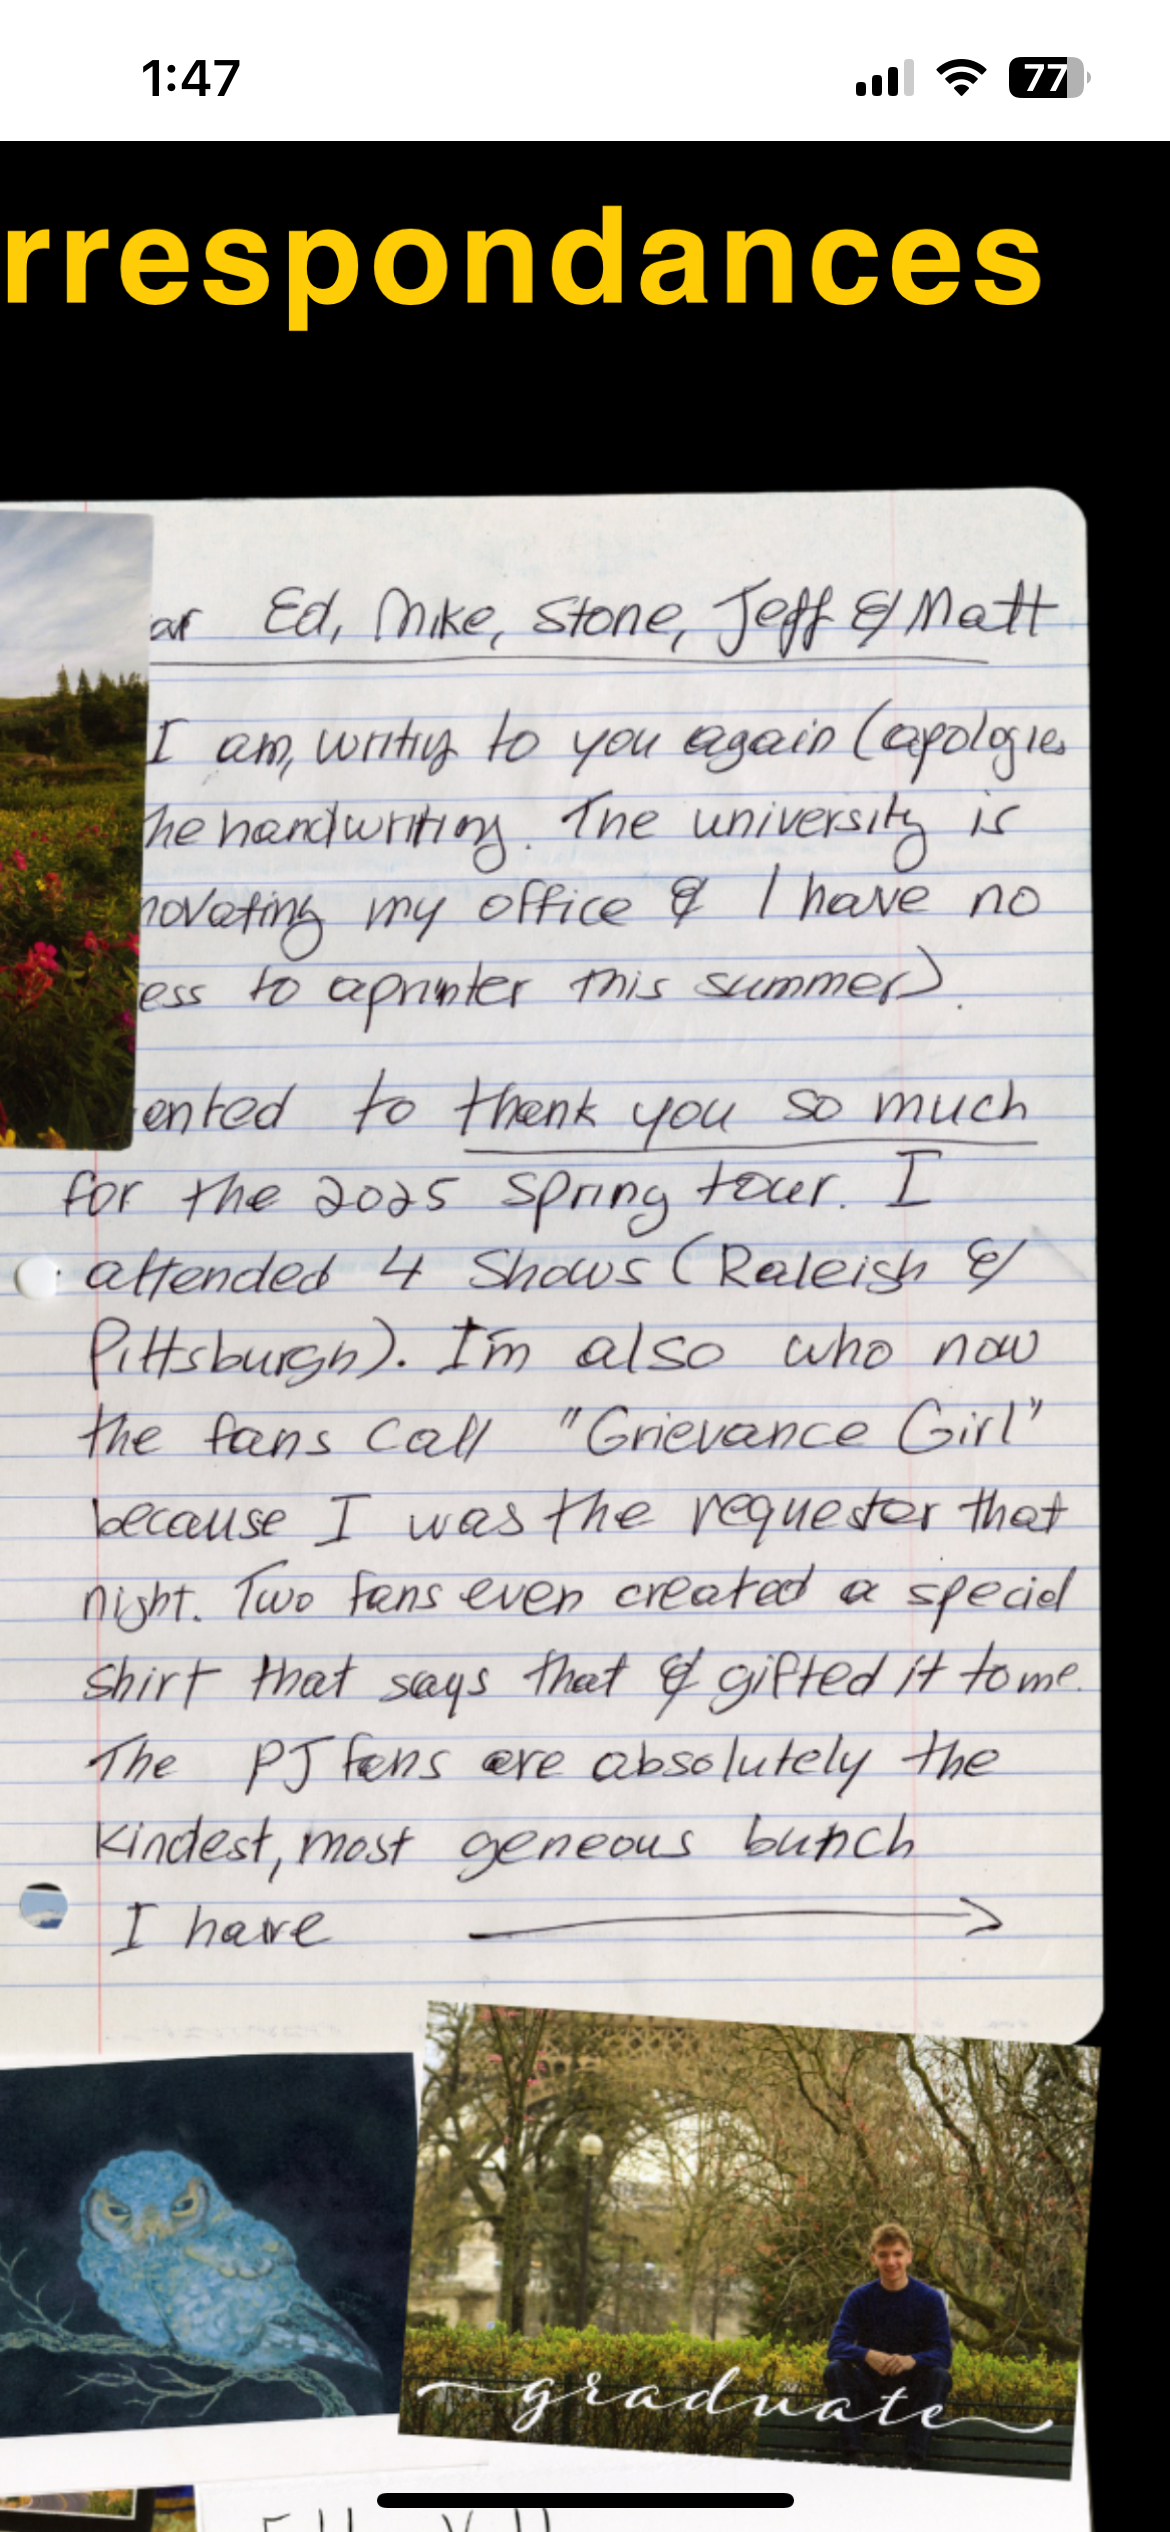 1:47
77
rrespondances
ar Ed, Mike, Stone, Jeff & Matt
I am, writiy to you again (apologies
he handwriting. The university is
novating my office & I have no
ess to a printer this summer).
anted to thank you so much
for the 2025 spring tour. I
attended 4 Shows (Raleigh &
Pittsburgh). I'm also who now
the fans call "Grievance Girl"
because I was the requester that
night. Two fans even created a special
shirt that says that & gifted it to me.
The PJ fans are absolutely the
kindest, most geneous bunch
I have
graduate